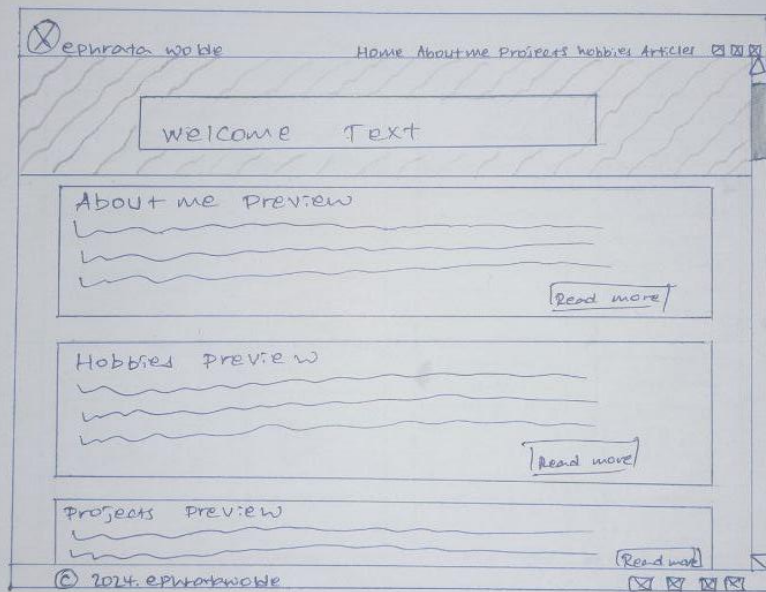 ephrata wolde
Home About me Projects hobbies Articles
Welcome Text
About me Preview
Read more
Hobbies Preview
Read more
Projects Preview
Read more
© 2024. ephratawolde